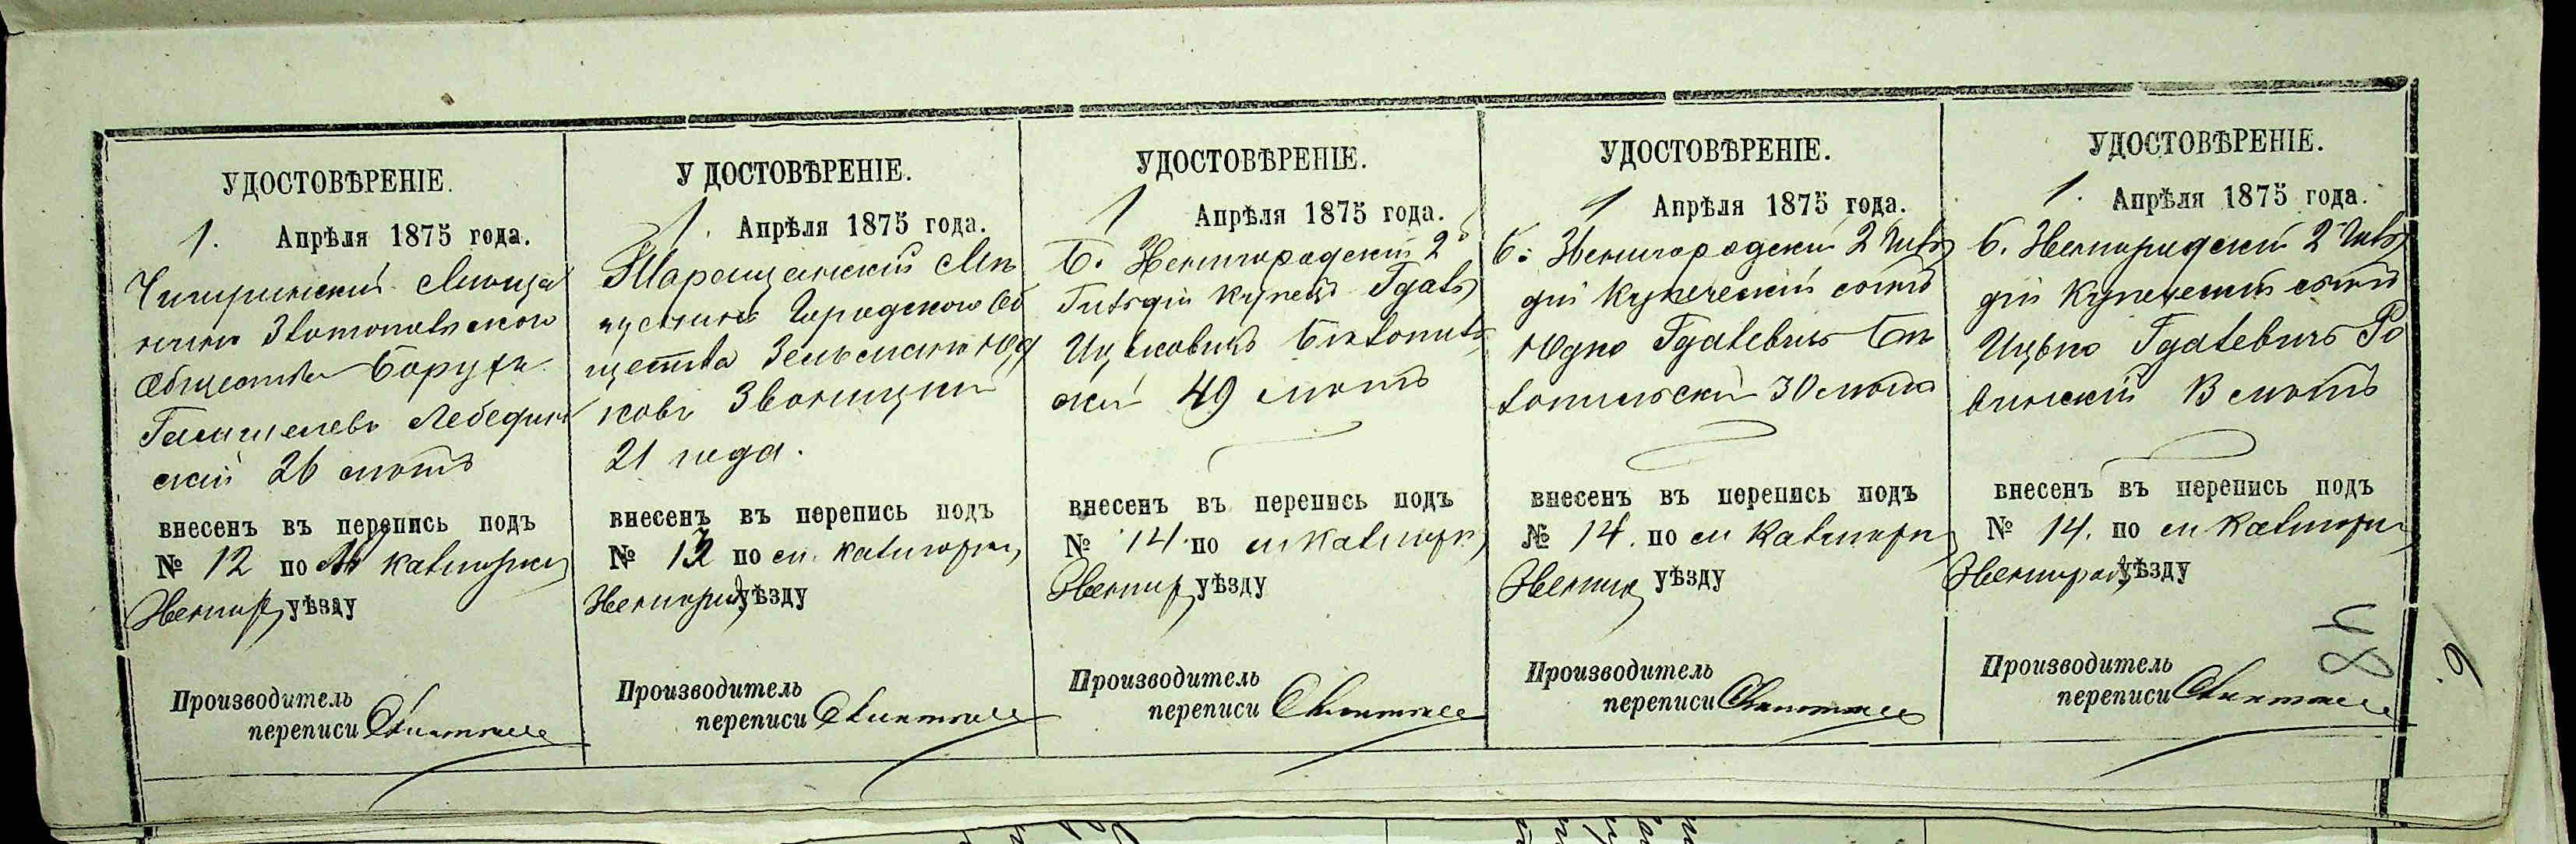 УДОСТОВѢРЕНІЕ.
1. Апрѣля 1875 года.
Чигиринскій Мѣща
нинъ Златопольскаго
Общества Борухъ
Лебедин
скій 26 лѣтъ
внесенъ въ перепись подъ
№ 12 по категоріи
Звенигор уѣзду
Производитель
переписи
УДОСТОВѢРЕНІЕ.
1. Апрѣля 1875 года.
Таращанскій Мѣ
щанинъ Городскаго Об
щества Зельманъ Юд
ковъ Звоницкій
21 года.
внесенъ въ перепись подъ
№ по см. категоріи,
Звенигород уѣзду
Производитель
переписи
УДОСТОВѢРЕНІЕ.
1 Апрѣля 1875 года.
б. Звенигородскій 2й
Гильдіи купецъ Гдаль
Ицьковичъ
скій 49 лѣтъ
внесенъ въ перепись подъ
№ 14. по см категорі
Звенигор уѣзду
Производитель
переписи
УДОСТОВѢРЕНІЕ.
1 Апрѣля 1875 года.
б. Звенигородскій 2 Гиль
діи Купеческій сынъ
Юдко Гдалевичъ
30 лѣтъ
внесенъ въ перепись подъ
№ 14. по см категорі
Звениг уѣзду
Производитель
переписи
УДОСТОВѢРЕНІЕ.
1. Апрѣля 1875 года.
б. Звенигородскій 2 Гиль
діи Купеческій сынъ
Ицько Гдалевичъ Ро
винскій 13 лѣтъ
внесенъ въ перепись подъ
№ 14. по см категорі
Звенигород уѣзду
Производитель
переписи